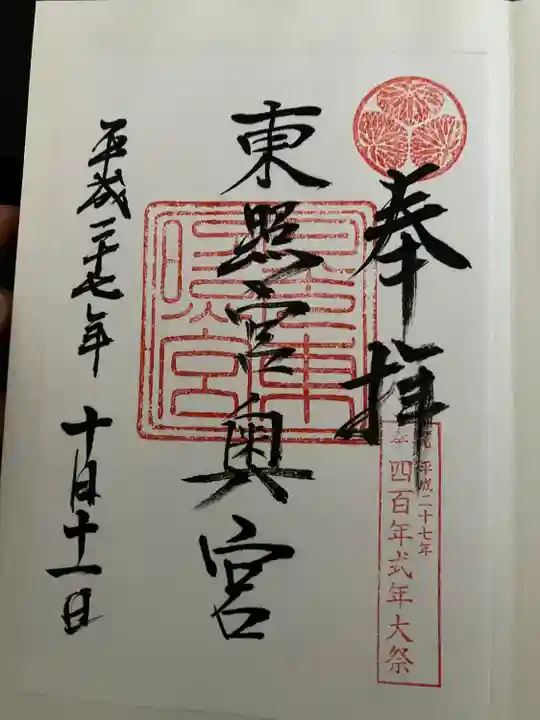 奉拝
平成二十七年
四百年式年大祭
東照宮奥宮
平成二十七年 十月十一日